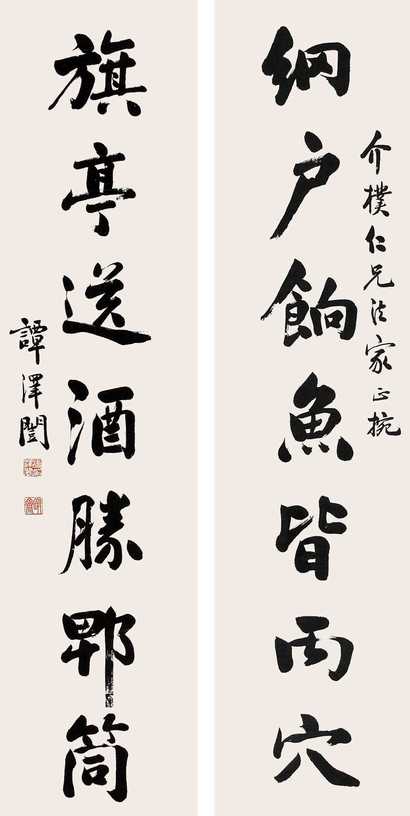 介樸仁兄法家正捥
網户餉魚皆丙穴
旗亭送酒勝郫筒
譚澤闓